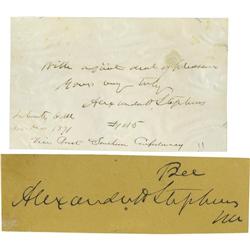 With a great deal of pleasure
Yours very truly
Alexander H Stephens
1871
Vice Prest Southern Confederacy
Rec
Alexander H Stephens